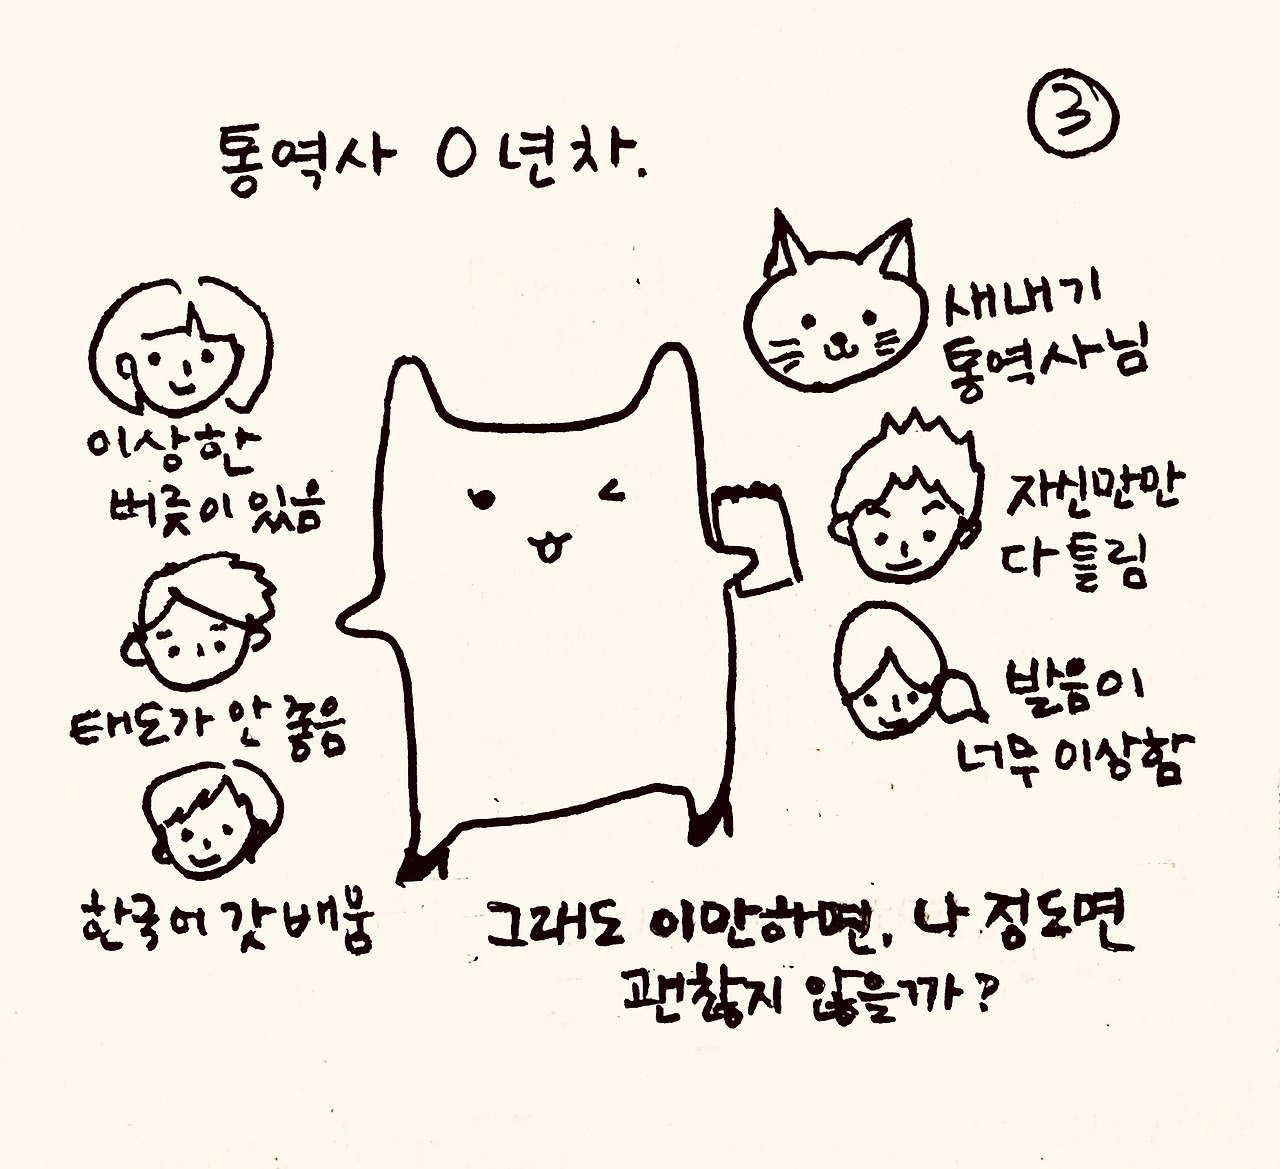 통역사 0년차.
3
이상한
버릇이 있음
태도가 안 좋음
한국어 갓 배움
새내기
통역사님
자신만만
다 틀림
발음이
너무 이상함
그래도 이만하면, 나 정도면
괜찮지 않을까?